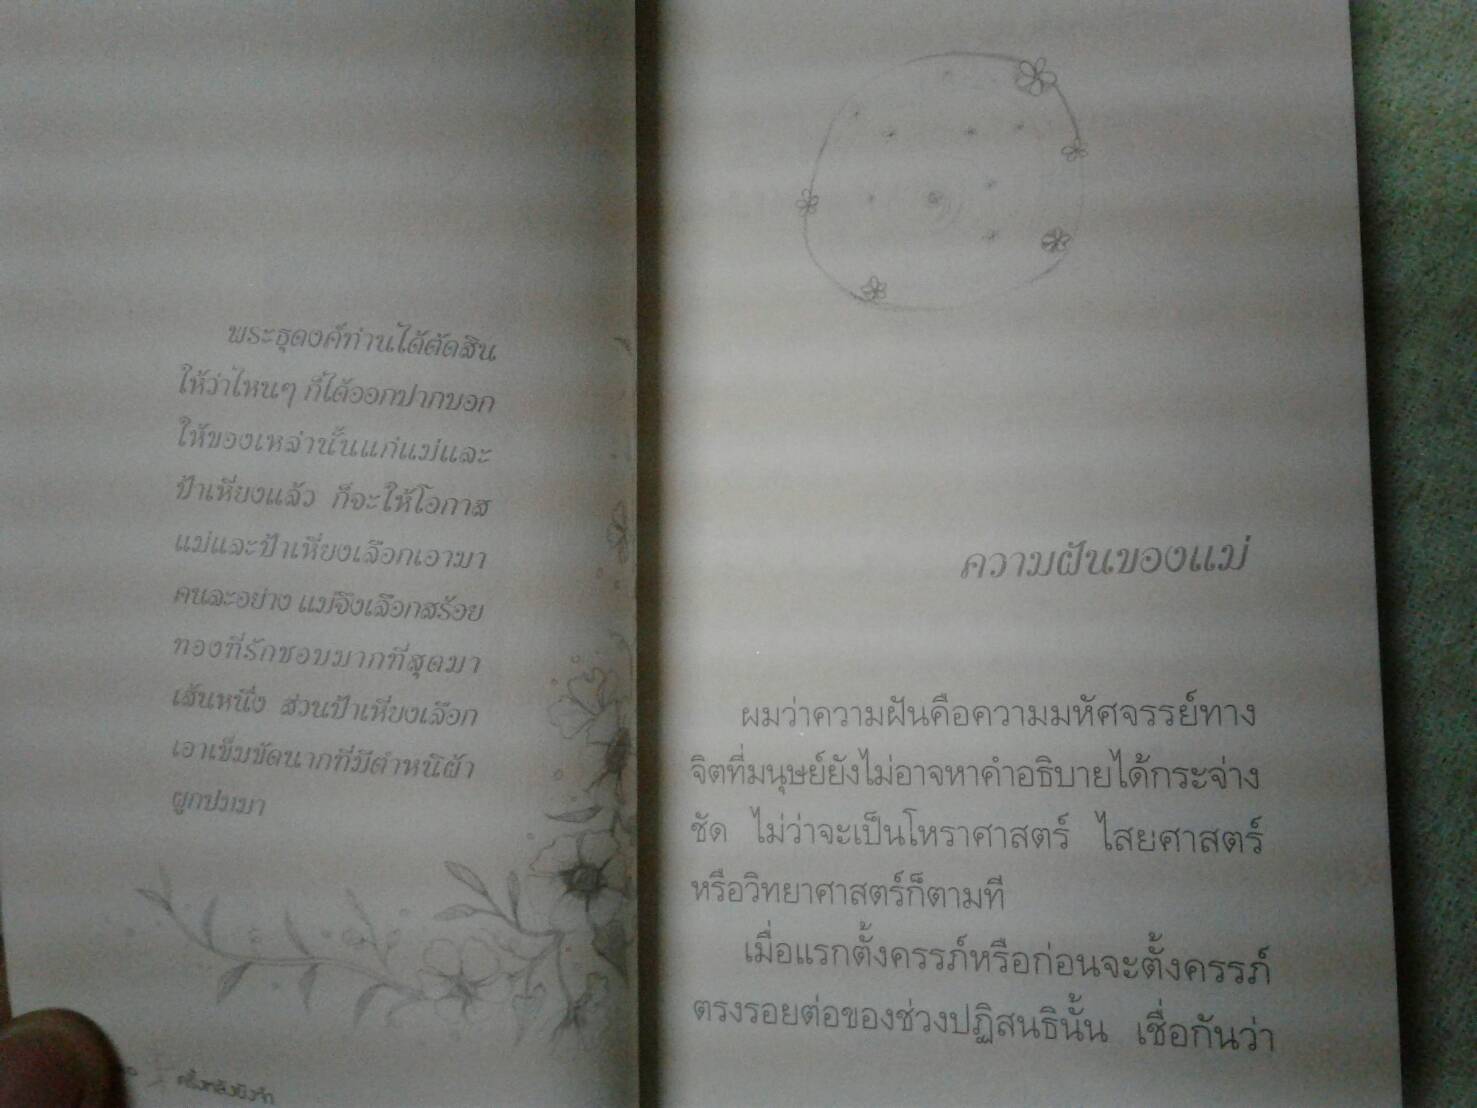 พระธุดงค์ท่านได้ตัดสิน
ให้ว่าไหนๆ ก็ได้ออกปากบอก
ให้ของเหล่านั้นแก่แม่และ
ป้าเหี่ยงแล้ว ก็จะให้โอกาส
แม่และป้าเหี่ยงเลือกเอามา
คนละอย่าง แม่จึงเลือกสร้อย
ทองที่รักชอบมากที่สุดมา
เส้นหนึ่ง ส่วนป้าเหี่ยงเลือก
เอาเข็มขัดนากที่มีตำหนิผ้า
ผูกปมมา
ความฝันของแม่
ผมว่าความฝันคือความมหัศจรรย์ทาง
จิตที่มนุษย์ยังไม่อาจหาคำอธิบายได้กระจ่าง
ชัด ไม่ว่าจะเป็นโหราศาสตร์ ไสยศาสตร์
หรือวิทยาศาสตร์ก็ตามที
เมื่อแรกตั้งครรภ์หรือก่อนจะตั้งครรภ์
ตรงรอยต่อของช่วงปฏิสนธินั้น เชื่อกันว่า